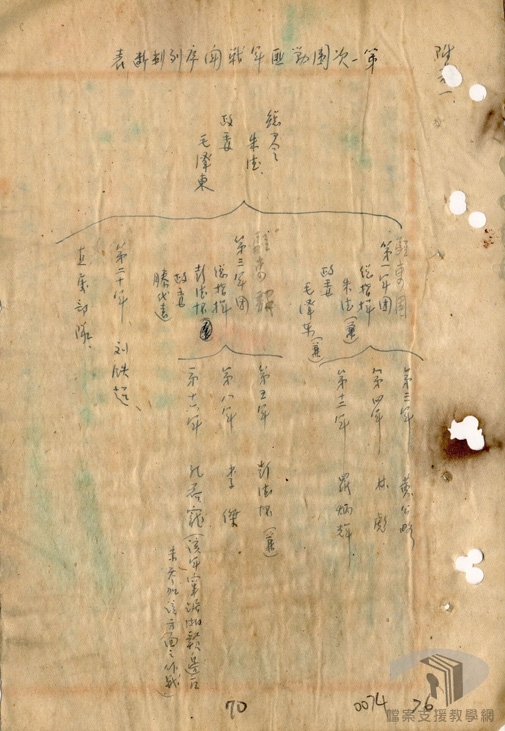 附表一
第一次圍勦匪軍戰鬥序列判斷表
總司令
朱德
政委
毛澤東
第一軍團
總指揮
朱德(兼)
政委
毛澤東(兼)
第三軍 黃公略
第四軍 林彪
第十二軍 羅炳輝
第三軍團
總指揮
彭德怀
政委
滕代遠
第五軍 彭德怀(兼)
第八軍 李傑
第十六軍 孔荷寵(該軍
未參加該方面之作战)
第二十軍 刘鉄超
直屬部隊
70
0074
76
檔案支援教學網